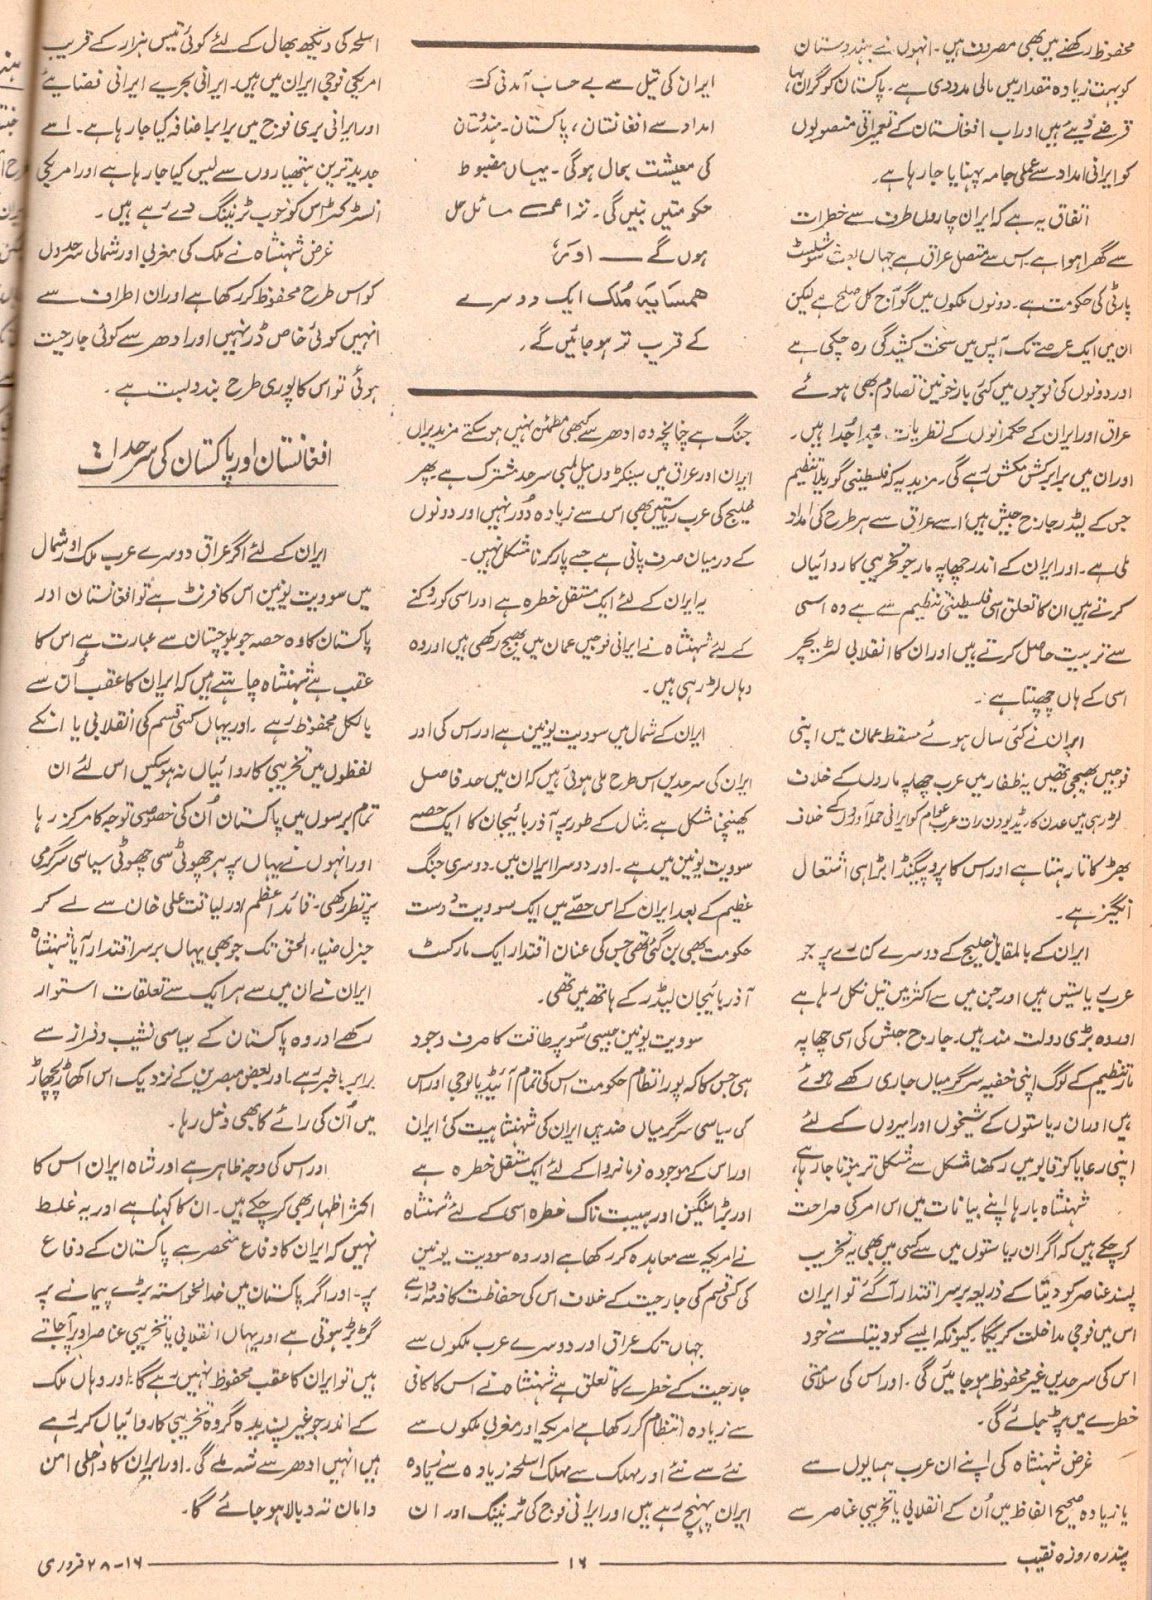 محفوظ رکھنے میں بھی مصروف ہیں۔ انہوں نے ہندوستان
کو بہت زیادہ مقدار میں مالی مدد دی ہے۔ پاکستان کو گراں بہا
قرضے دیئے ہیں اور اب افغانستان کے تعمیراتی منصوبوں
کو ایرانی امداد سے عملی جامہ پہنایا جا رہا ہے۔
اتفاق یہ ہے کہ ایران چاروں طرف سے خطرات
سے گھرا ہوا ہے۔ اس سے متصل عراق ہے جہاں بعث سوشلسٹ
پارٹی کی حکومت ہے۔ دونوں ملکوں میں گو آج کل صلح ہے لیکن
ان میں ایک عرصے تک آپس میں سخت کشیدگی رہ چکی ہے
اور دونوں کی فوجوں میں کئی بار خونین تصادم بھی ہوئے
عراق اور ایران کے حکمرانوں کے نظریات جدا جدا ہیں۔
اور ان میں برابر کش مکش رہے گی۔ مزید یہ کہ فلسطینی گوریلا تنظیم
جس کے لیڈر جارج حبش ہیں، اسے عراق سے ہر طرح کی امداد
ملی ہے۔ اور ایران کے اندر چھاپہ مار جو تخریبی کاروائیاں
کرتے ہیں ان کا تعلق اسی فلسطینی تنظیم سے ہے وہ اسی
سے تربیت حاصل کرتے ہیں اور ان کا انقلابی لٹریچر
اسی کے ہاں چھپتا ہے۔
ایران نے کئی سال ہوئے مسقط عمان میں اپنی
فوجیں بھیجی تھیں یہ ظفار میں عرب چھاپہ ماروں کے خلاف
لڑ رہی ہیں عدن کا ریڈیو دن رات عرب عوام کو ایرانی حملہ آوروں کے خلاف
بھڑکاتا رہتا ہے اور اس کا پروپیگنڈا بڑا ہی اشتعال
انگیز ہے۔
ایران کے بالمقابل خلیج کے دوسرے کنارے پر جو
عرب ریاستیں ہیں اور جن میں سے اکثر میں تیل نکل رہا ہے
اور وہ بڑی دولت مند ہیں۔ جارج حبش کی اسی چھاپہ
مار تنظیم کے لوگ اپنی خفیہ سرگرمیاں جاری رکھے ہوئے
ہیں اور ان ریاستوں کے شیخوں اور امیروں کے لئے
اپنی رعایا کو قابو میں رکھنا مشکل سے مشکل تر ہوتا جا رہا ہے،
شہنشاہ بارہا اپنے بیانات میں اس امر کی صراحت
کر چکے ہیں کہ اگر ان ریاستوں میں سے کسی میں بھی یہ تخریب
پسند عناصر کو دیتا کے ذریعہ برسر اقتدار آگئے تو ایران
اس میں فوجی مداخلت کریگا۔ کیونکہ ایسے کو دیتا سے خود
اس کی سرحدیں غیر محفوظ ہو جائیں گی۔ اور اس کی سلامتی
خطرے میں پڑ جائے گی۔
غرض شہنشاہ کی اپنے ان عرب ہمسایوں سے
یا زیادہ صحیح الفاظ میں اُن کے انقلابی یا تخریبی عناصر سے
ایران کی تیل سے بے حساب آمدنی کی
امداد سے افغانستان، پاکستان۔ ہندستان
کی معیشت بحال ہوگی۔ یہاں مضبوط
حکومتیں بنیں گی۔ نزاعی مسائل حل
ہوں گے — اور یہ
ہمسایہ مُلک ایک دوسرے
کے قریب تر ہو جائیں گے۔
جنگ ہے چنانچہ وہ ادھر سے کبھی مطمئن نہیں ہو سکتے مزید براں
ایران اور عراق میں سینکڑوں میل لمبی سرحد مشترک ہے۔ پھر
خلیج کی عرب ریاستیں بھی اس سے زیادہ دُور نہیں اور دونوں
کے درمیان صرف پانی ہے جسے پار کرنا مشکل نہیں۔
یہ ایران کے لئے ایک مستقل خطرہ ہے اور اسی کو روکنے
کے لئے شہنشاہ نے ایرانی فوجیں عمان میں بھیج رکھی ہیں اور وہ
وہاں لڑ رہی ہیں۔
ایران کے شمال میں سوویت یونین ہے اور اس کی اور
ایران کی سرحدیں اس طرح ملی ہوئی ہیں کہ ان میں حد فاصل
کھینچنا مشکل ہے مثال کے طور پر آذر بائیجان کا ایک حصہ
سوویت یونین میں ہے۔ اور دوسرا ایران میں۔ دوسری جنگ
عظیم کے بعد ایران کے اس حصّے میں ایک سوویت دوست
حکومت بھی بن گئی تھی جس کی عنان اقتدار ایک مارکسٹ
آذر بائیجان لیڈر کے ہاتھ میں تھی۔
سوویت یونین جیسی سُوپر طاقت کا صرف وجود
ہی جس کا کہ پورا نظام حکومت اس کی تمام آئیڈیالوجی اور اس
کی سیاسی سرگرمیاں ضد ہیں ایران کی شہنشاہیت کی، ایران
اور اس کے موجودہ فرمانروا کے لئے ایک مستقل خطرہ ہے
اور بڑا سنگین اور ہیبت ناک خطرہ اسی کے لئے شہنشاہ
نے امریکہ سے معاہدہ کر رکھا ہے اور وہ سوویت یونین
کی کسی قسم کی جارحیت کے خلاف اس کی حفاظت کا ذمہ دار ہے،
جہاں تک عراق اور دوسرے عرب ملکوں سے
جارحیت کے خطرے کا تعلق ہے شہنشاہ نے اس کا کافی
سے زیادہ انتظام کر رکھا ہے امریکہ اور مغربی ملکوں سے
نئے سے نئے اور مہلک سے مہلک اسلحہ زیادہ سے زیادہ
ایران پہنچ رہے ہیں اور ایرانی فوج کی ٹریننگ اور ان
اسلحہ کی دیکھ بھال کے لئے کوئی تیس ہزار کے قریب
امریکی فوجی ایران میں ہیں۔ ایرانی بحریے ایرانی فضائیے
اور ایرانی بری فوج میں برابر اضافہ کیا جا رہا ہے۔ اسے
جدید ترین ہتھیاروں سے لیس کیا جا رہا ہے اور امریکی
انسٹرکٹر اس کو خوب ٹریننگ دے رہے ہیں۔
غرض شہنشاہ نے ملک کی مغربی اور شمالی سرحدوں
کو اس طرح محفوظ کر رکھا ہے اور ان اطراف سے
انہیں کوئی خاص ڈر نہیں اور ادھر سے کوئی جارحیت
ہوئی تو اس کا پوری طرح بندوبست ہے۔
افغانستان اور پاکستان کی سرحدات
ایران کے لئے اگر عراق دوسرے عرب ملک اور شمال
میں سوویت یونین اس کا فرنٹ ہے تو افغانستان اور
پاکستان کا وہ حصہ جو بلوچستان سے عبارت ہے اس کا
عقب ہے شہنشاہ چاہتے ہیں کہ ایران کا عقب اُن سے
بالکل محفوظ رہے۔ اور یہاں کسی قسم کی انقلابی یا انکے
لفظوں میں تخریبی کاروائیاں نہ ہو سکیں اس لئے ان
تمام برسوں میں پاکستان اُن کی خصوصی توجہ کا مرکز رہا
اور انہوں نے یہاں پر ہر چھوٹی سی چھوٹی سیاسی سرگرمی
پر نظر رکھی۔ قائد اعظم اور لیاقت علی خان سے لے کر
جنرل ضیاء الحق تک جو بھی یہاں برسر اقتدار آیا شہنشاہ
ایران نے ان میں سے ہر ایک سے تعلقات استوار
رکھے اور وہ پاکستان کے سیاسی نشیب و فراز سے
برابر باخبر رہے۔ اور بعض مبصرین کے نزدیک اس اکھاڑ پچھاڑ
میں اُن کی رائے کا بھی دخل رہا۔
اور اس کی وجہ ظاہر ہے اور شاہ ایران اس کا
اکثر اظہار بھی کر چکے ہیں۔ ان کا کہنا ہے اور یہ غلط
نہیں کہ ایران کا دفاع منحصر ہے پاکستان کے دفاع
پر۔ اور اگر پاکستان میں خدانخواستہ بڑے پیمانے پر
گڑبڑ ہوتی ہے اور یہاں انقلابی یا تخریبی عناصر اوپر آجاتے
ہیں تو ایران کا عقب محفوظ نہیں رہے گا۔ اور وہاں ملک
کے اندر جو غیر پسندیدہ گروہ تخریبی کاروائیاں کر رہے
ہیں انہیں ادھر سے شہ ملے گی۔ اور ایران کا داخلی امن
و امان تہ و بالا ہو جائے گا۔
پندرہ روزہ نقیب
۱۶
۱۶-۲۸ فروری